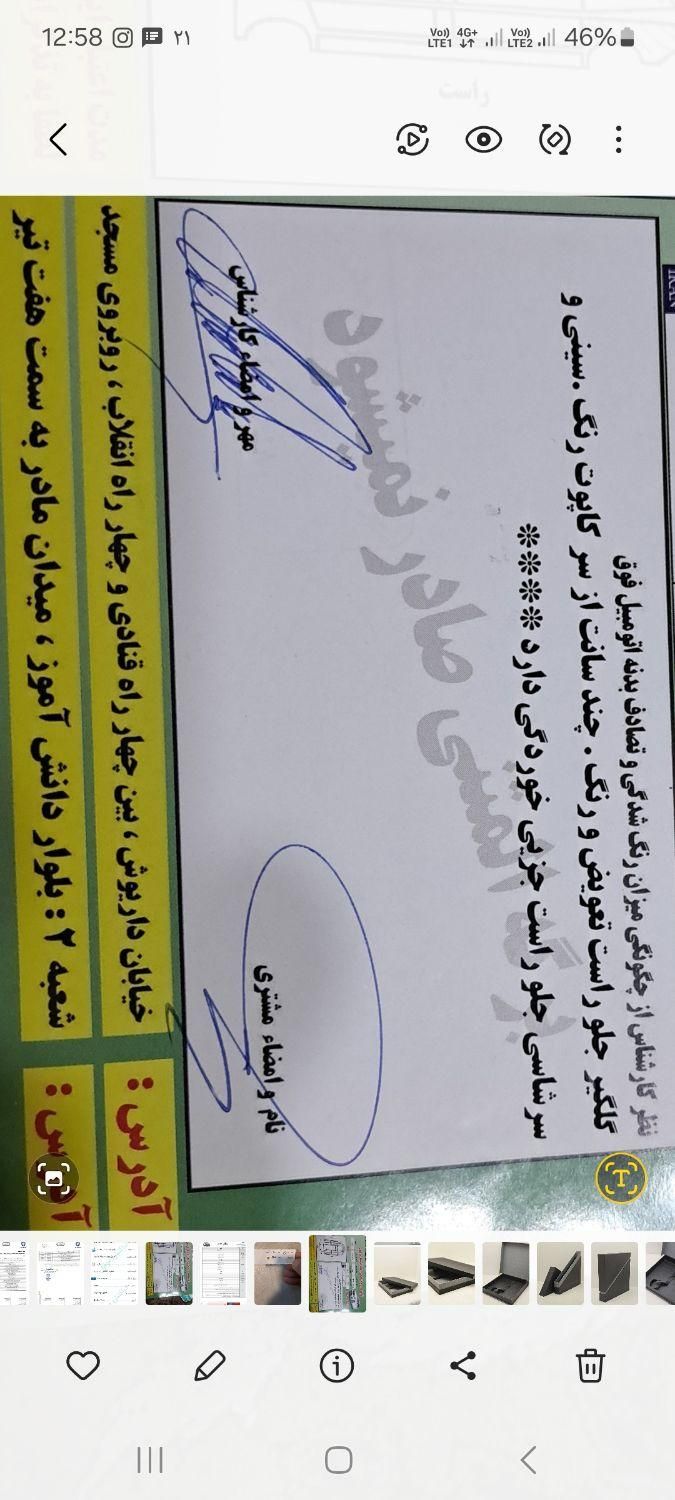 12:58
۲۱
Vo)) 4G+ Vo))
LTE1 LTE2 46%
راست
نظر کارشناس از چگونگی میزان رنگ شدگی و تصادف بدنه اتومبیل فوق
گلگیر جلو راست تعویض و رنگ . چند سانت از سر کاپوت رنگ .سینی و
سر شاسی جلو راست جزیی خوردگی دارد ****
برگه المثنی صادر نمیشود
نام و امضاء مشتری
مهر و امضاء کارشناس
آدرس :
خیابان داریوش ، بین چهار راه قنادی و چهار راه انقلاب ، روبروی مسجد
آدرس :
شعبه ۲ : بلوار دانش آموز ، میدان مادر به سمت هفت تیر
T